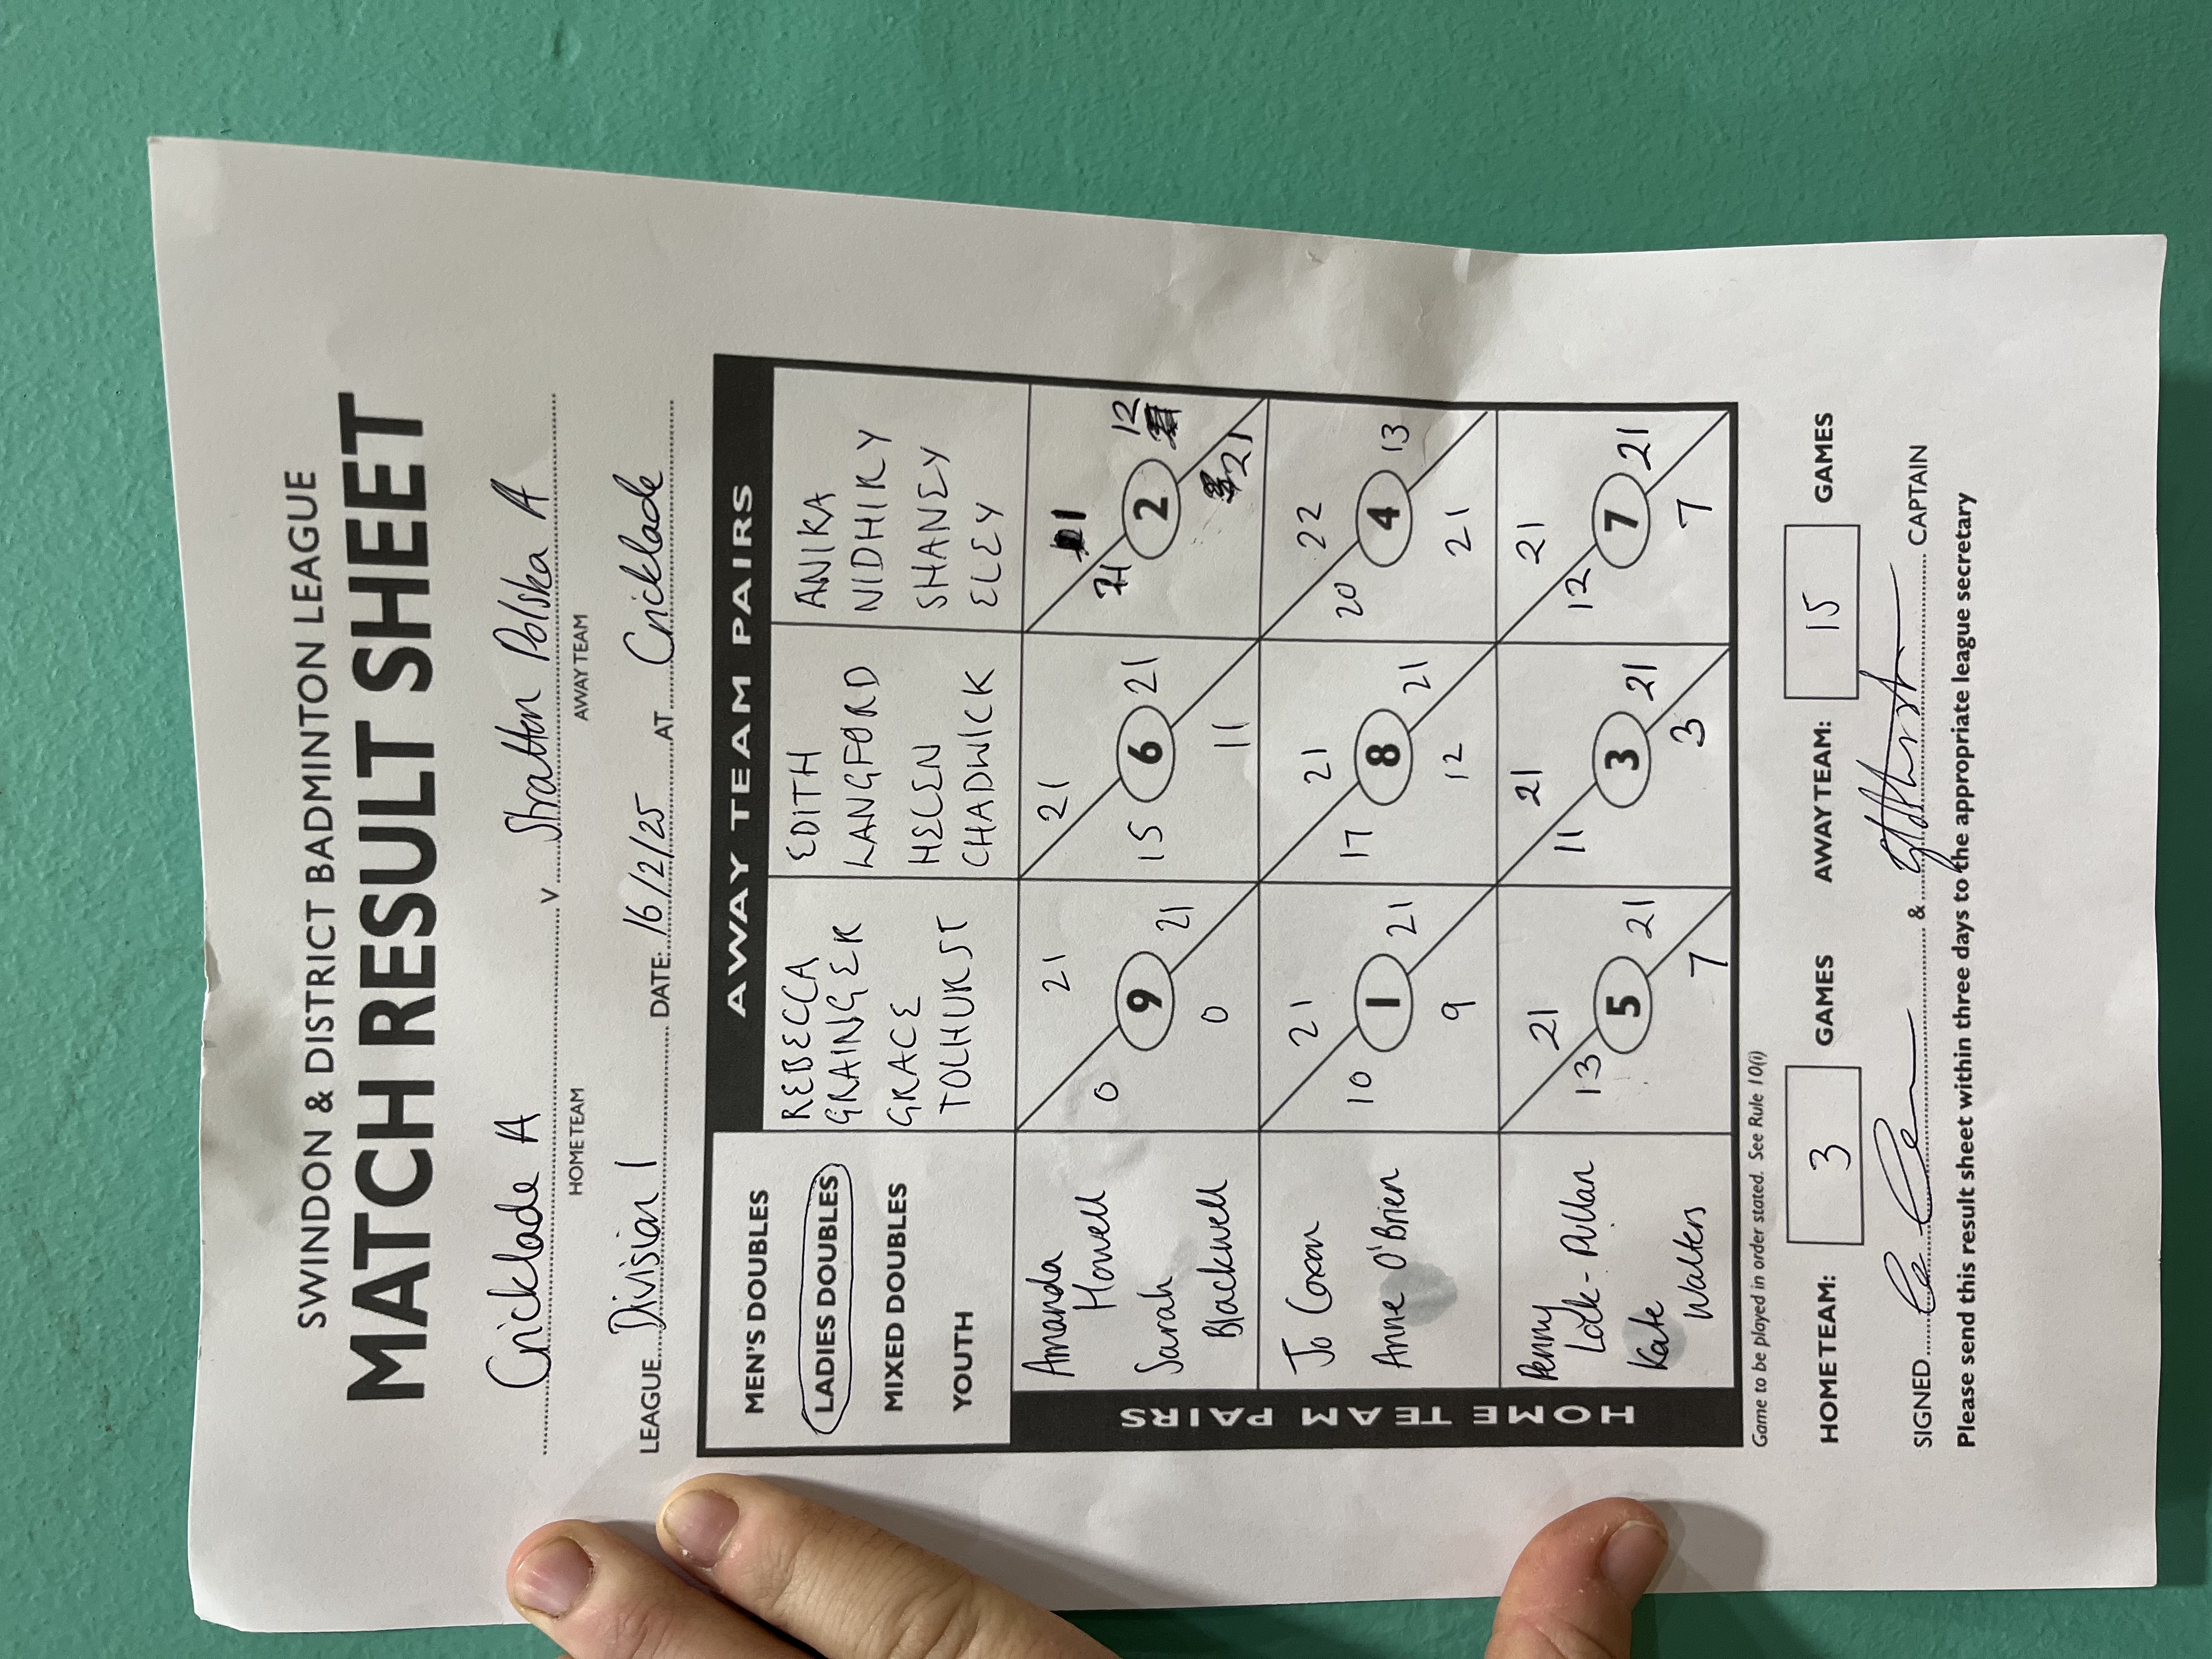 SWINDON & DISTRICT BADMINTON LEAGUE
MATCH RESULT SHEET
Cricklade A v Stratton Polska A
HOME TEAM AWAY TEAM
LEAGUE Division 1 DATE: 16/2/25 AT Cricklade
AWAY TEAM PAIRS
MEN'S DOUBLES
LADIES DOUBLES
MIXED DOUBLES
YOUTH
REBECCA
GRAINGER
GRACE
TOLHURST
EDITH
LANGFORD
HELEN
CHADWICK
ANIKA
NIDHIRY
SHANEY
ELEY
HOME TEAM PAIRS
Amanda
Howell
Sarah
Blackwell
21
0 9 21
0
21
15 6 21
11
21
2 12
21
Jo Coxon
Anne O'Brien
21
10 1 21
9
21
17 8 21
12
22
20 4 13
21
Penny
Lock-Pullan
Kate
Walters
21
13 5 21
7
21
11 3 21
3
21
12 7 21
7
Game to be played in order stated. See Rule 10(i)
HOME TEAM: 3 GAMES AWAY TEAM: 15 GAMES
SIGNED & CAPTAIN
Please send this result sheet within three days to the appropriate league secretary